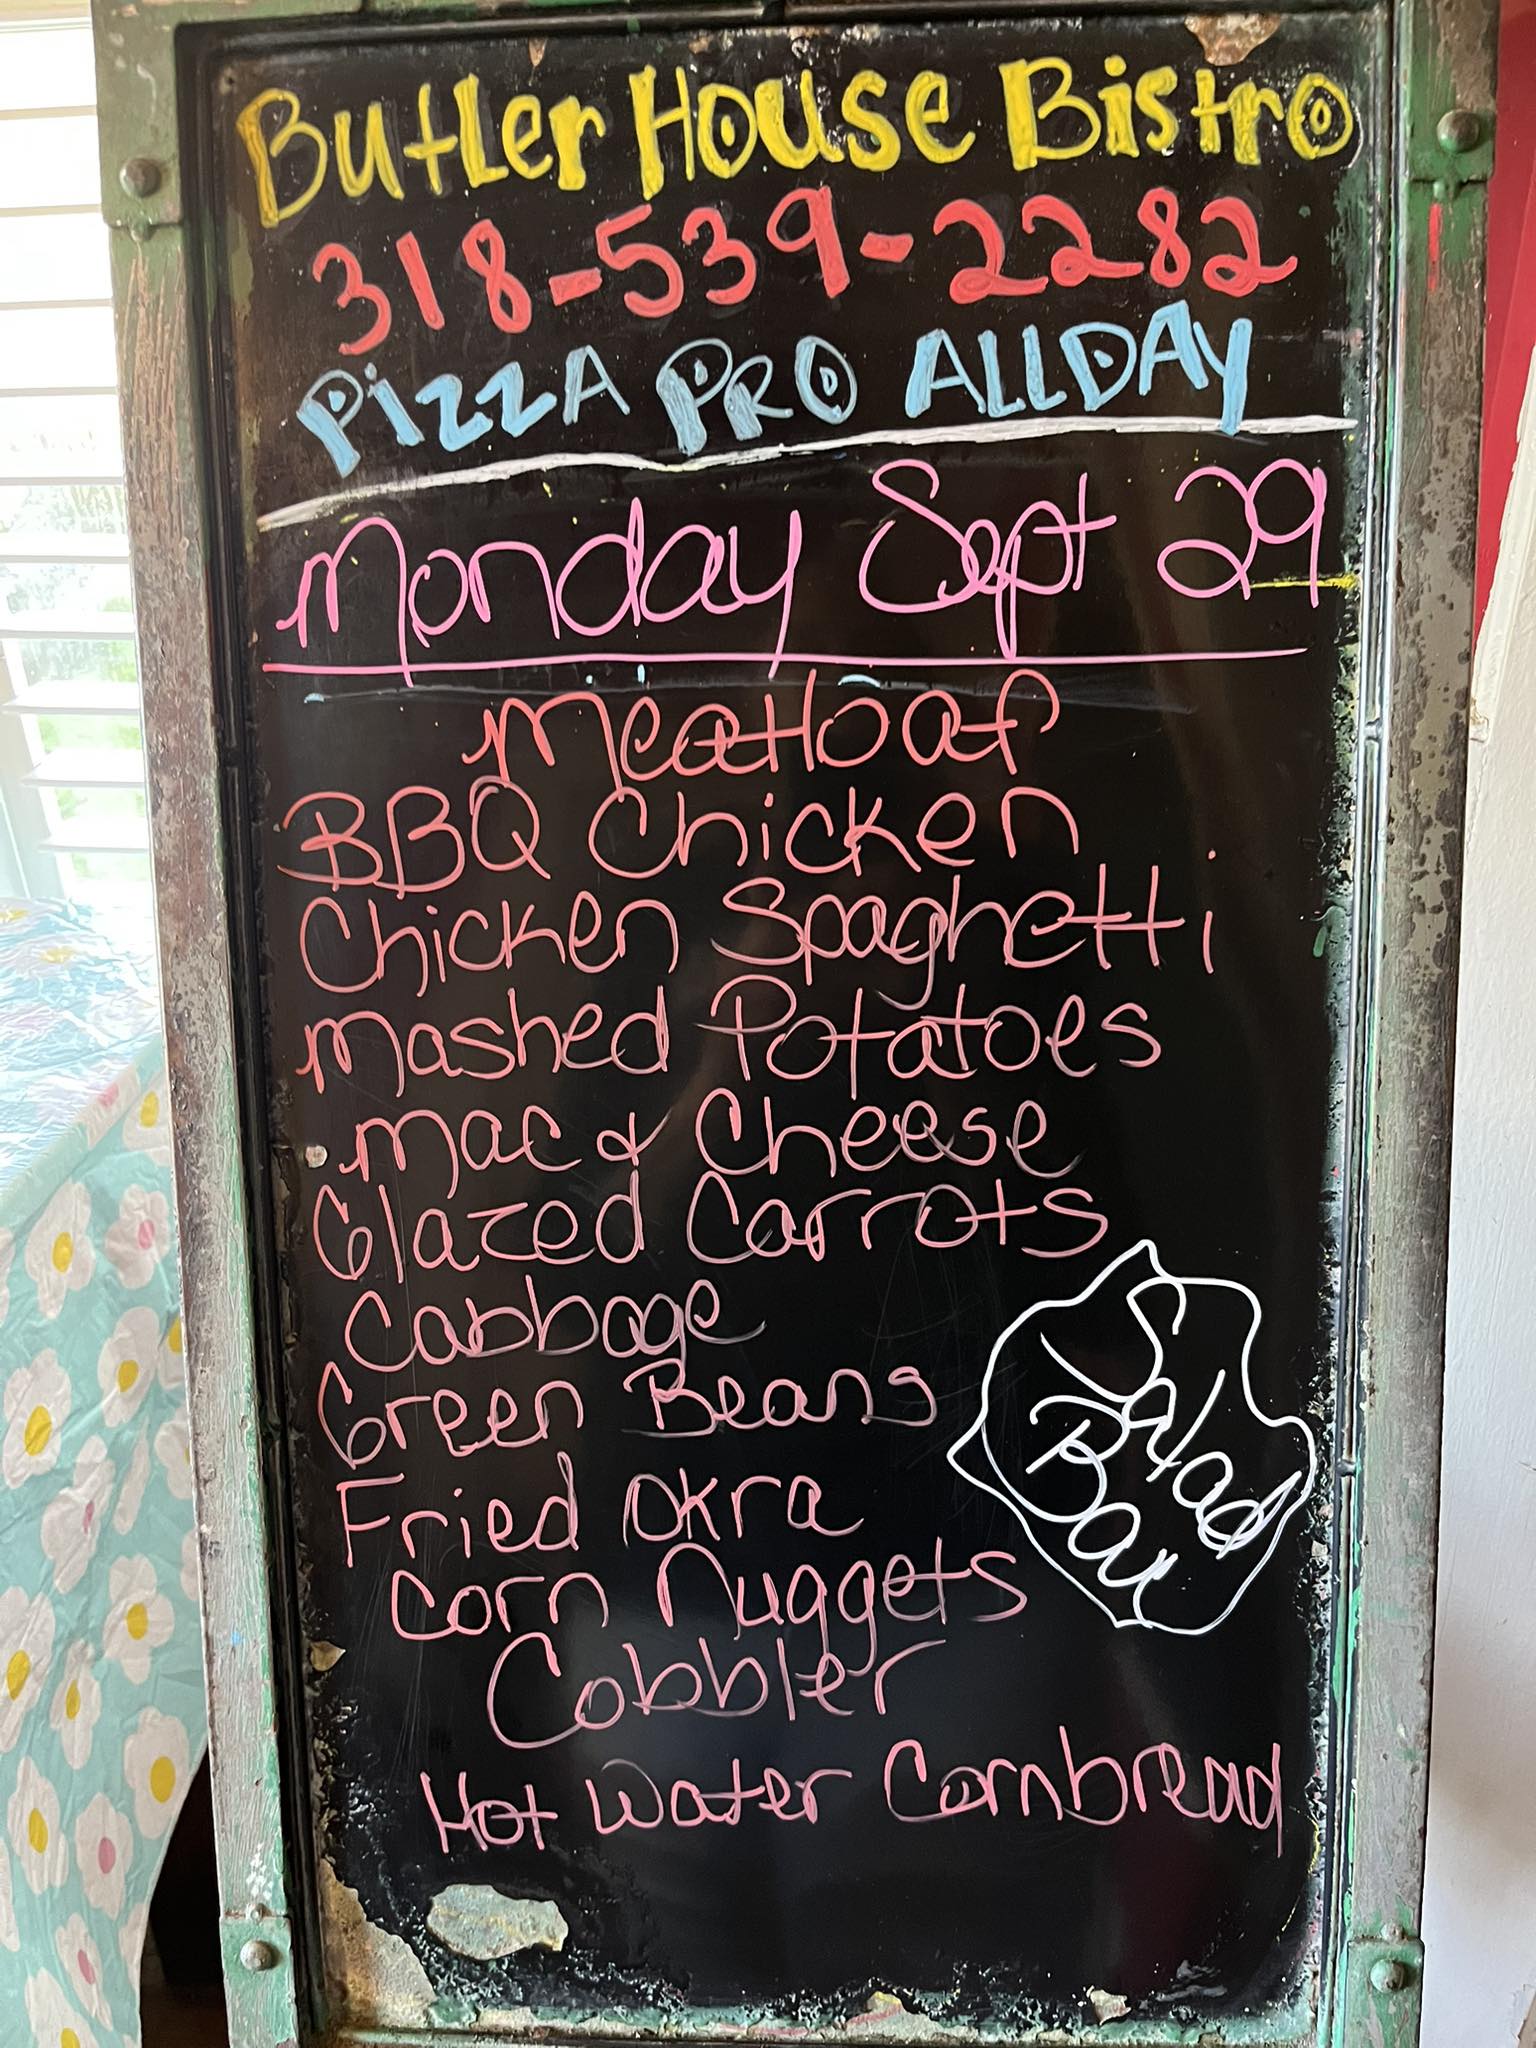 Butler House Bistro
318-539-2282
PiZZA PRO ALLDAY
Monday Sept 29
Meatloaf
BBQ Chicken
Chicken Spaghetti
Mashed Potatoes
Mac & Cheese
Glazed Carrots
Cabbage
Green Beans
Fried Okra
Corn Nuggets
Cobbler
Hot Water Cornbread
Salad
Bar